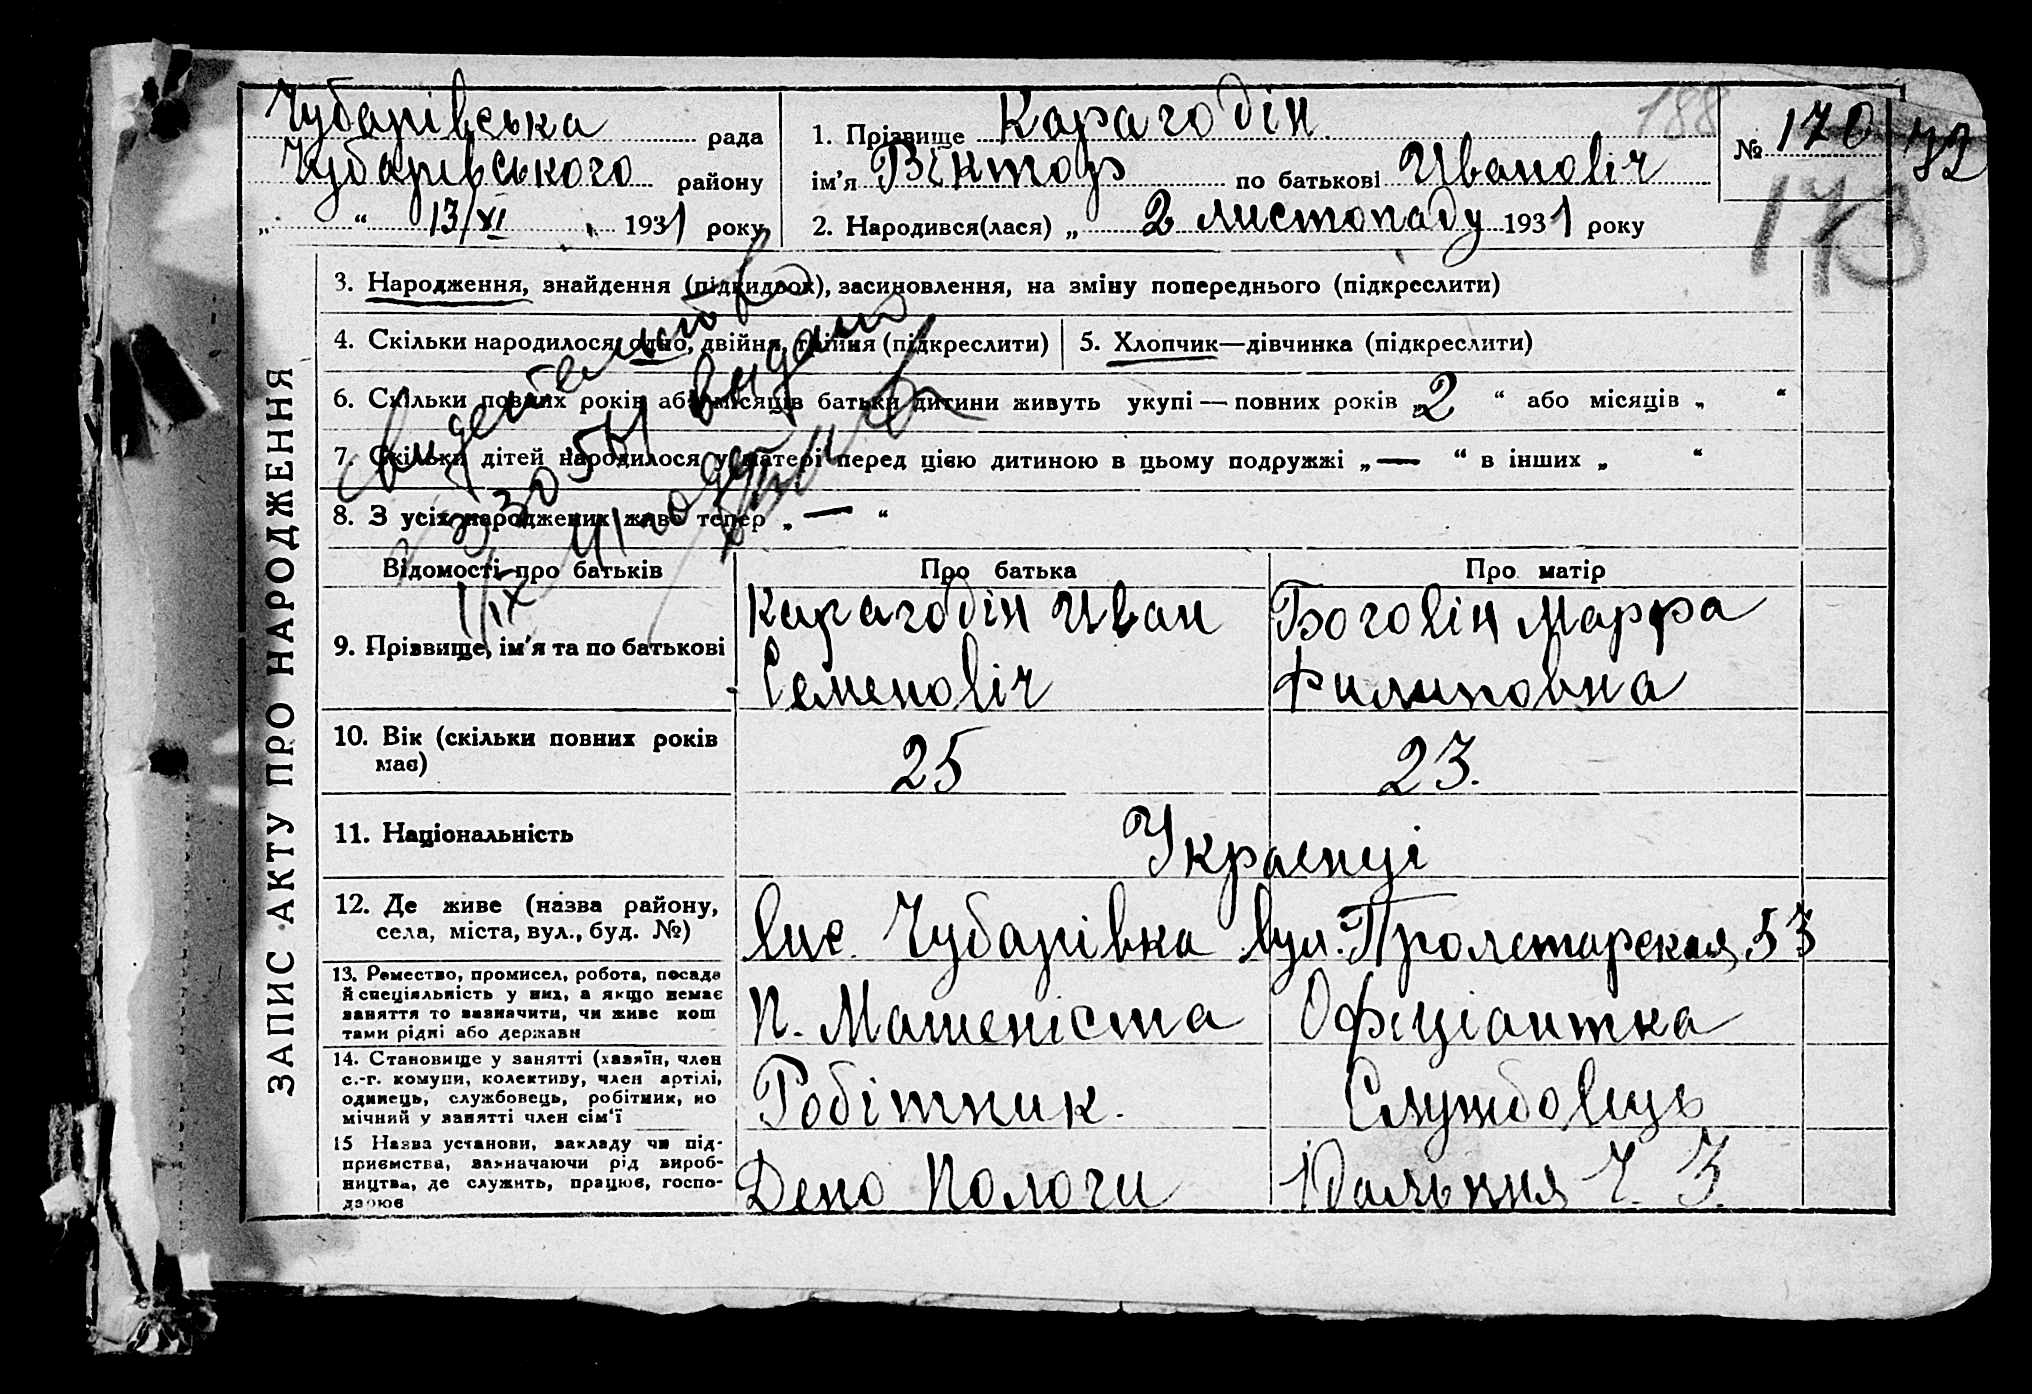 ЗАПИС АКТУ ПРО НАРОДЖЕННЯ
Чубарівська рада
Чубарівського району
„ “ 13/XI 1931 року
1. Прізвище Карагодін
188
ім’я Віктор по батькові Ивановіч
2. Народився(лася) „ 2 листопаду 1931 року
№ 170
72
173
3. Народження, знайдення (підкидок), засиновлення, на зміну попереднього (підкреслити)
4. Скільки народилося: одно, двійня, трійня (підкреслити)
5. Хлопчик—дівчинка (підкреслити)
6. Скільки повних років або місяців батьки дитини живуть укупі — повних років „2 “ або місяців „ “
7. Скільки дітей народилося у матері перед цією дитиною в цьому подружжі „— “ в інших „ “
8. З усіх народжених живе тепер „ — “
Свидетельство
выдано
1/IX 41 года
Відомості про батьків
Про батька
Про матір
9. Прізвище, ім’я та по батькові
Карагодін Иван
Семеновіч
Боговін Марфа
Филиповна
10. Вік (скільки повних років
має)
25
23.
11. Національність
Украенці
12. Де живе (назва району,
села, міста, вул., буд. №)
Чубарівка вул. Пролетарская 53
13. Ремество, промисел, робота, посада
й спеціяльність у них, а якщо немає
заняття то зазначити, чи живе кош
тами рідні або держави
П. Машеніста
Офіціантка
14. Становище у занятті (хазяїн, член
с.-г. комуни, колективу, член артілі,
одинець, службовець, робітник, по
мічний у занятті член сім‘ї
Робітник.
Службовець
15 Назва установи, закладу чи під-
приємства, зазначаючи рід вироб-
ництва, де служить, працює, госпо-
дарює
Депо Пологи
Ч. З.